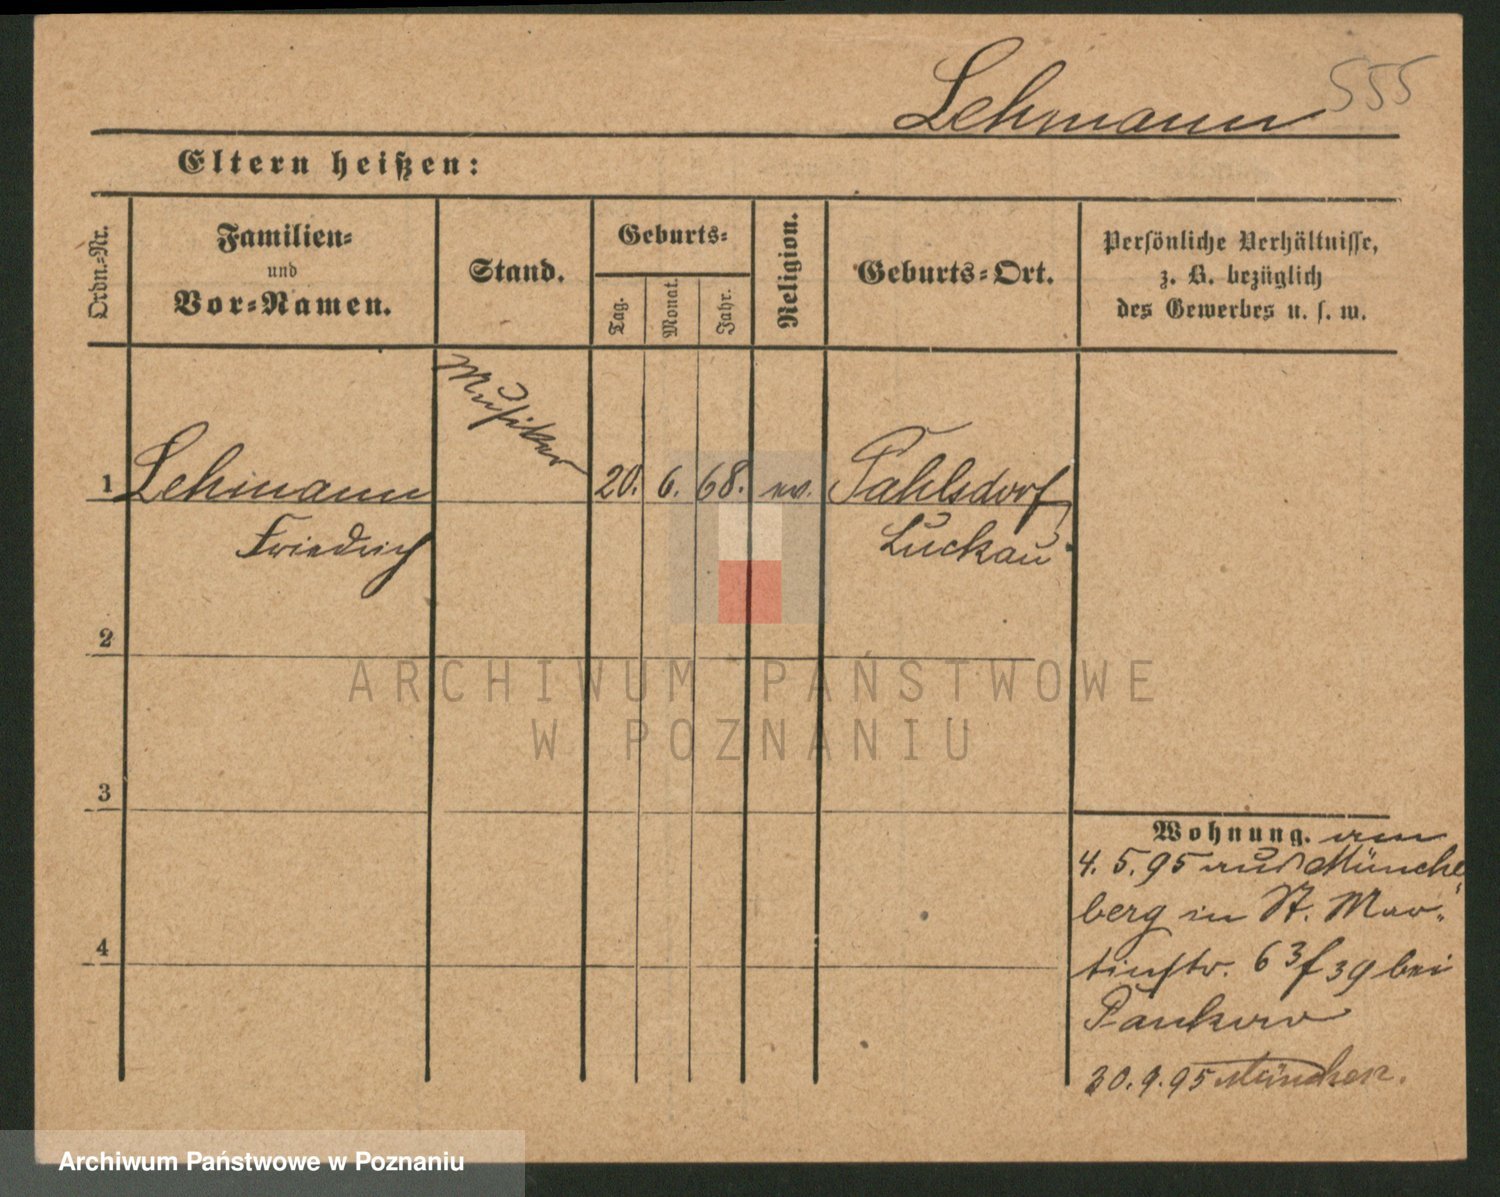 Lehmann 555
Eltern heißen:
Ordn.-Nr.
Familien-
und
Vor-Namen.
Stand.
Geburts-
Tag.
Monat.
Jahr.
Religion.
Geburts-Ort.
Persönliche Verhältnisse,
z. B. bezüglich
des Gewerbes u. s. w.
Musiker
1 Lehmann 20. 6. 68. ev. Pahlsdorf
Friedrich Luckau
2
3
4
Wohnung.
4. 5. 95 aus Münche-
berg in St. Mar-
tinstr. 63 39 bei
Pankow
30. 9. 95 München.
ARCHIWUM PAŃSTWOWE
W POZNANIU
Archiwum Państwowe w Poznaniu